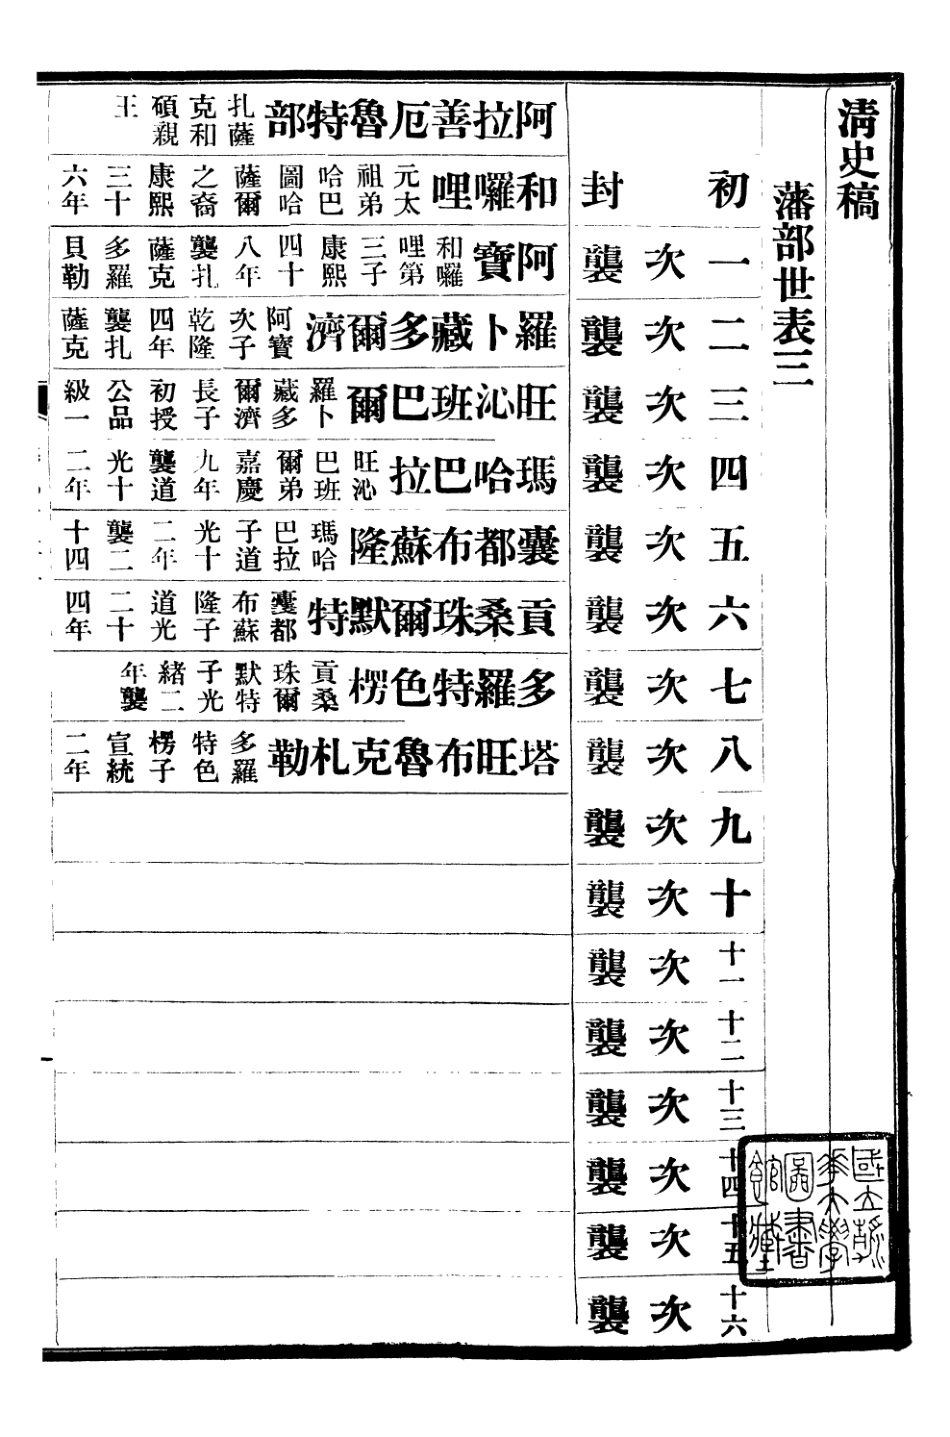 清史稿
藩部世表三
初封
一次襲
二次襲
三次襲
四次襲
五次襲
六次襲
七次襲
八次襲
九次襲
十次襲
十一次襲
十二次襲
十三次襲
十四次襲
十五次襲
十六次襲
阿拉善厄魯特部扎薩克和碩親王
和囉哩元太祖弟哈巴圖哈薩爾之裔康熙三十六年
阿寶和囉哩第三子康熙四十八年襲扎薩克多羅貝勒
羅卜藏多爾濟阿寶次子乾隆四年襲扎薩克
旺沁班巴爾羅卜藏多爾濟長子初授公品級一
瑪哈巴拉旺沁巴班爾弟嘉慶九年襲道光十二年
囊都布蘇隆瑪哈巴拉子道光十二年襲二十四
貢桑珠爾默特囊都布蘇隆子道光二十四年
多羅特色楞貢桑珠爾默特子光緒二年襲
塔旺布魯克札勒多羅特色楞子宣統二年
國立清華大學圖書館藏